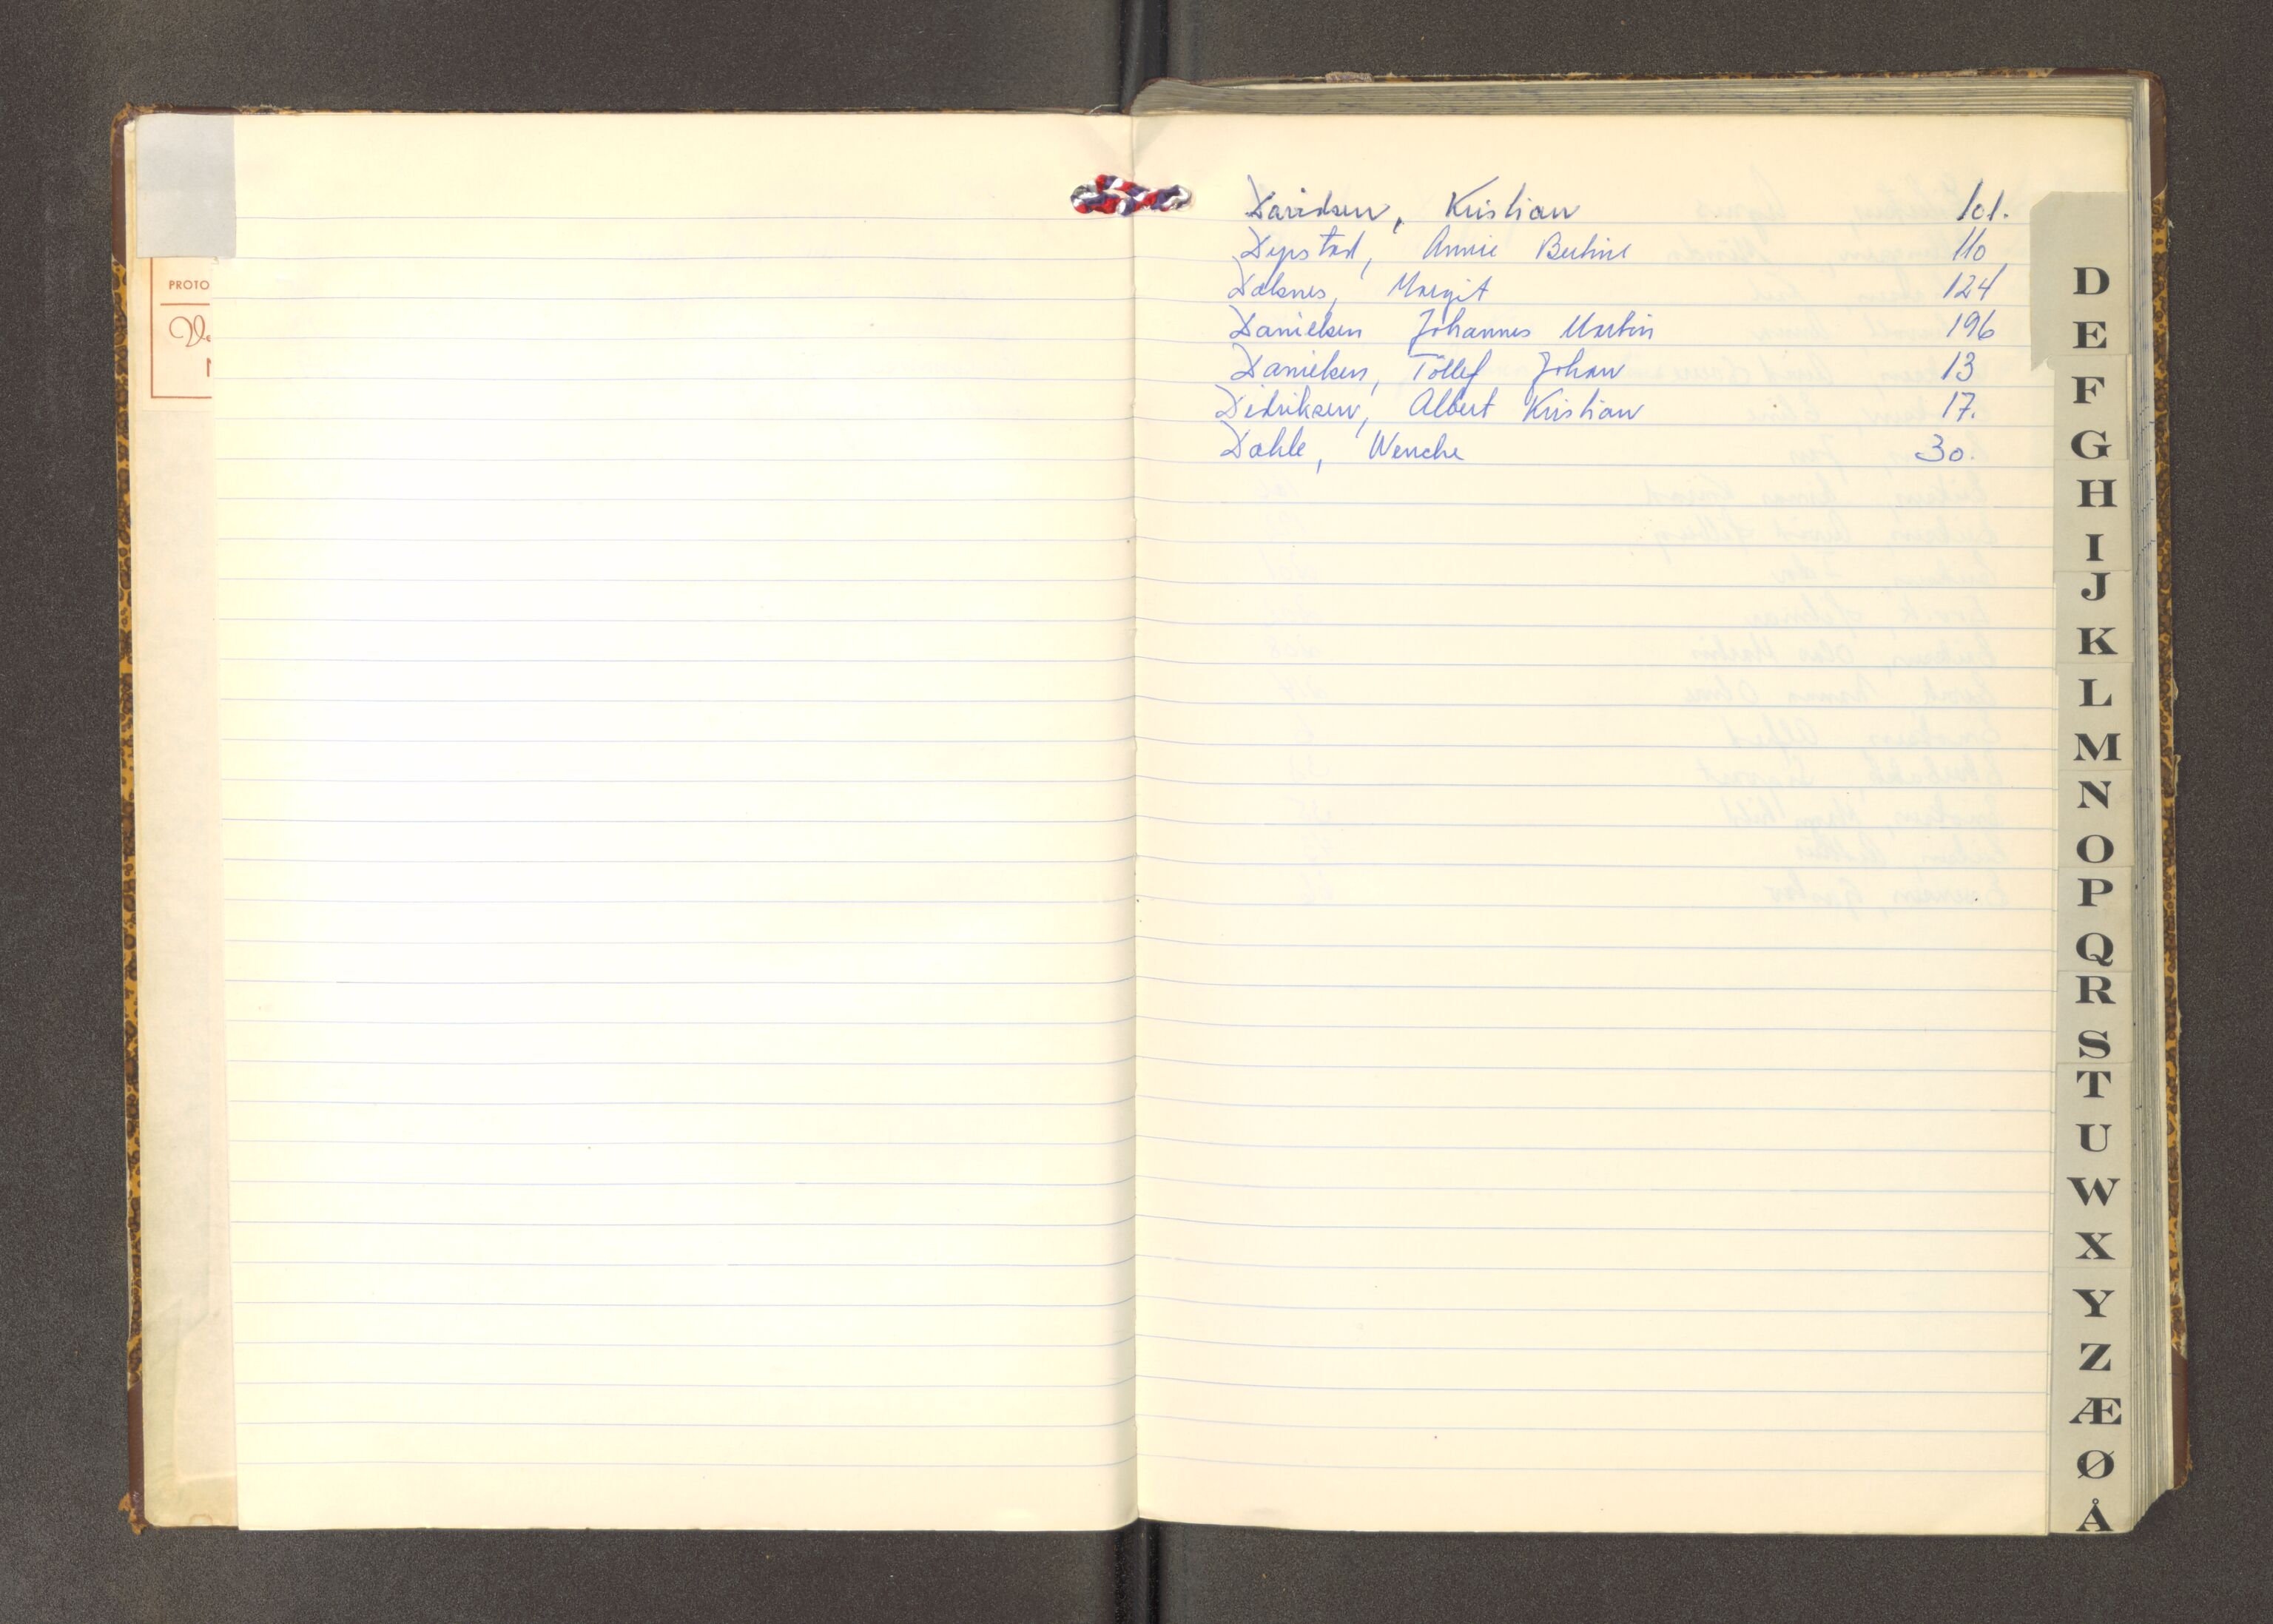 PROTO
Davidsen, Kristian 101.
Dypstad, Annie Bertine 110
Daknes, Margit 124
Danielsen Johannes Martin 196
Danielsen, Tollef Johan 13
Didriksen, Albert Kristian 17.
Dahle, Wenche 30.
D
E
F
G
H
I
J
K
L
M
N
O
P
Q
R
S
T
U
W
X
Y
Z
Æ
Ø
Å